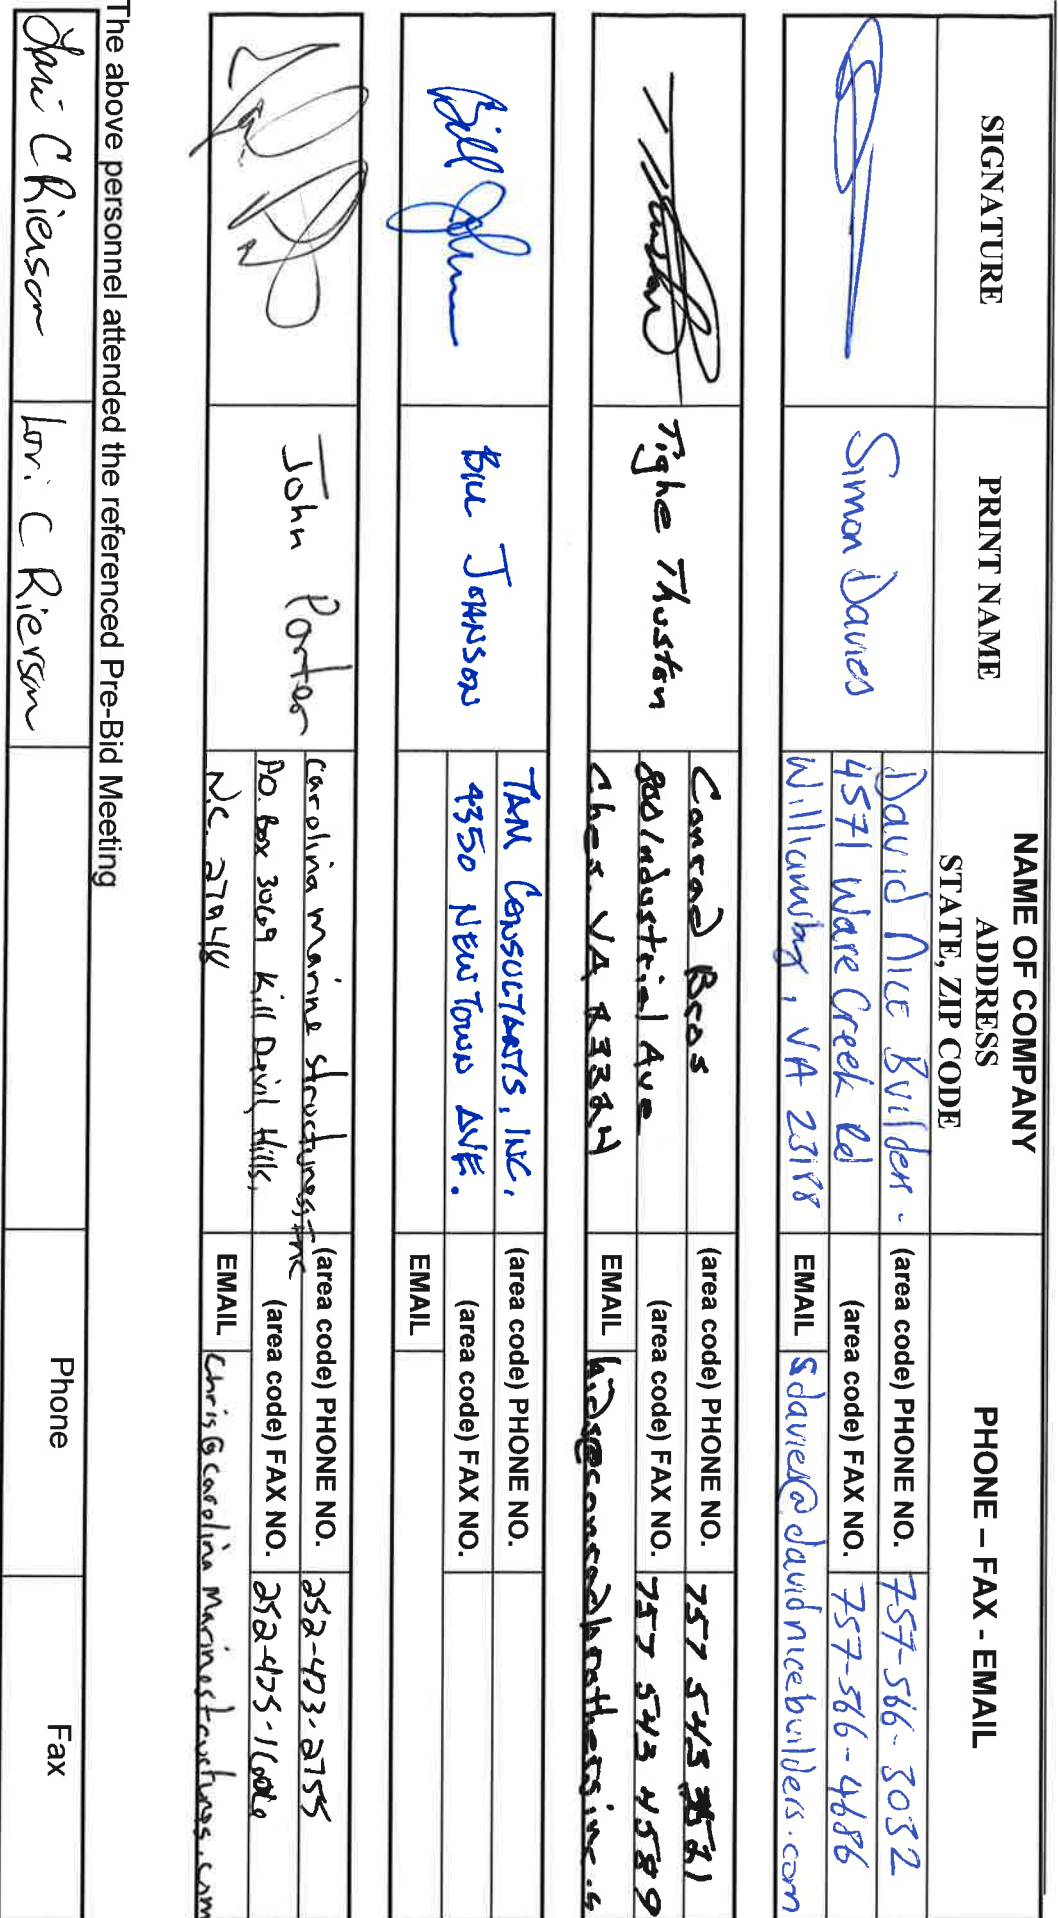 SIGNATURE
PRINT NAME
NAME OF COMPANY
ADDRESS
STATE, ZIP CODE
PHONE – FAX - EMAIL
Simon Davies
David Nice Builders
4571 Ware Creek Rd
Williamsbg, VA 23188
(area code) PHONE NO. 757-566-3032
(area code) FAX NO. 757-566-4686
EMAIL sdavies@davidnicebuilders.com
Tighe Thuston
Conrad Bros
800 Industrial Ave
Ches. VA 23324
(area code) PHONE NO. 757 543 3521
(area code) FAX NO. 757 543 4589
EMAIL
Bill Johnson
BILL JOHNSON
TAM CONSULTANTS, INC.
4350 NEW TOWN AVE.
(area code) PHONE NO.
(area code) FAX NO.
EMAIL
John Porter
Carolina Marine Structures, Inc
P.O. Box 3069 Kill Devil Hills,
N.C. 27948
(area code) PHONE NO. 252-473-2755
(area code) FAX NO. 252-475-1606
EMAIL Chris@carolinamarinestructures.com
The above personnel attended the referenced Pre-Bid Meeting
Lori C Rierson
Lori C Rierson
Phone
Fax